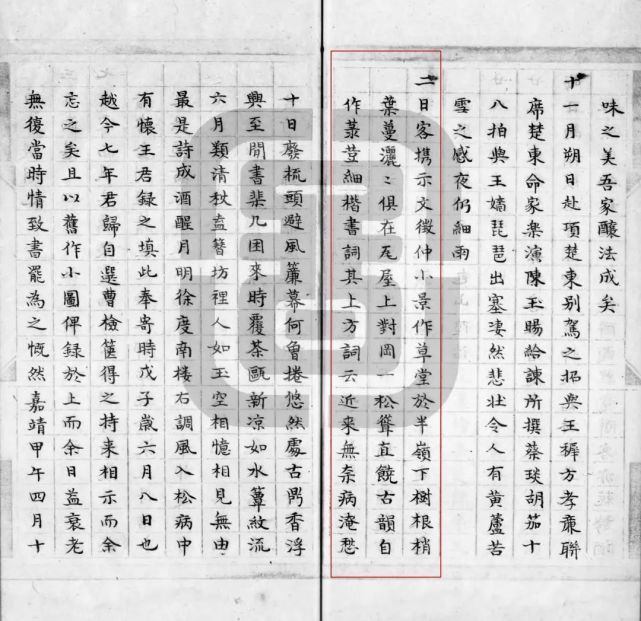 味之美吾家釀法成矣
十一月朔日赴項楚東别駕之招與王穉方孝亷聯
席楚東命家樂演陳玉暘給諫所撰蔡琰胡笳十
八拍與王嬙琵琶出塞凄然悲壮令人有黄蘆苦
雪之感夜仍細雨
二日客攜示文徵仲小景作草堂於半嶺下樹根梢
葉蔓灑〻俱在瓦屋上對岡一松聳直饒古韻自
作蒸荳細楷書詞其上方詞云近来無奈病淹愁
十日廢梳頭避風簾幕何曾捲悠然處古鬲香浮
興至閒書棐几困來時覆茶甌新凉如水簟紋流
六月類清杖盍簪坊裡人如玉空相憶相見無由
最是詩成酒醒月明徐度南樓右調風入松病中
有懷王君録之填此奉寄時戊子歲六月八日也
越今七年君歸自選曹檢篋得之持来相示而余
忘之矣且以舊作小圖俾録於上而余日益衰老
無復當時情致書罷為之慨然嘉靖甲午四月十